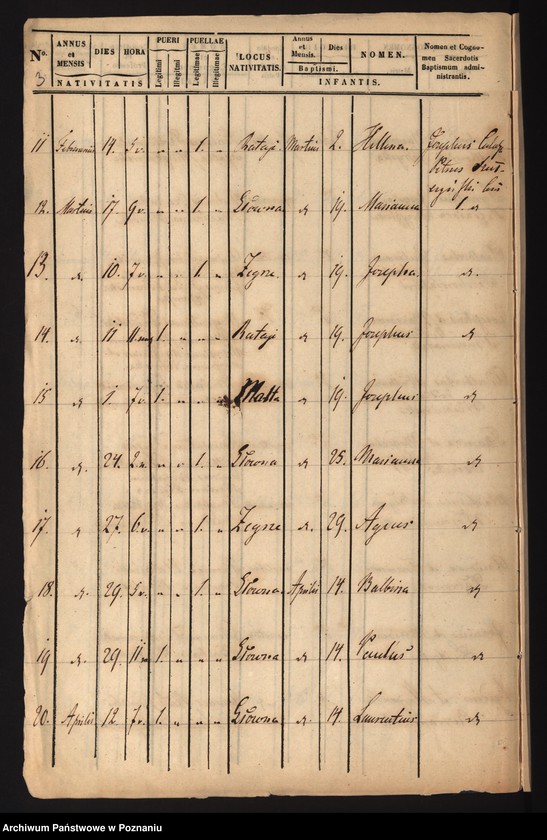 No. ANNUS et MENSIS DIES HORA PUERI PUELLAE LOCUS NATIVITATIS. Annus et Mensis. Dies NOMEN. Nomen et Cognomen Sacerdotis Baptismum administrantis.
3 NATIVITATIS Legitimi Illegitmi Legitimae Illegitimae Baptismi. INFANTIS.
11 Februarius 14. 5 v. " " 1. " Rataje Martius 2. Hellena. Josephus
12. Martius 17. 9 v. " " 1. " Głowna d 19. Marianna d
13. d. 10. 7 v. " " 1. " Zegrze. d 19. Josepha. d.
14. d. 11 11 1. " " " Rataje d 19. Josephus d
15 d. 1. 7 v. 1. " " " Malta d 19. Josephus d
16. d. 24. 2. " " 1. " Głowna d 25. Marianna d
17. d 27. 6. v. " " 1. " Zegrze d. 29. Agnes d
18. d. 29. 5 v. " " 1. " Głowna. Aprilis 14. Balbina d
19 d. 29. 11 1. " " " Głowna d 14. Paulus d
20. Aprilis 12. 7 v. 1. " " " Głowna d. 14. Laurentius d
Archiwum Państwowe w Poznaniu